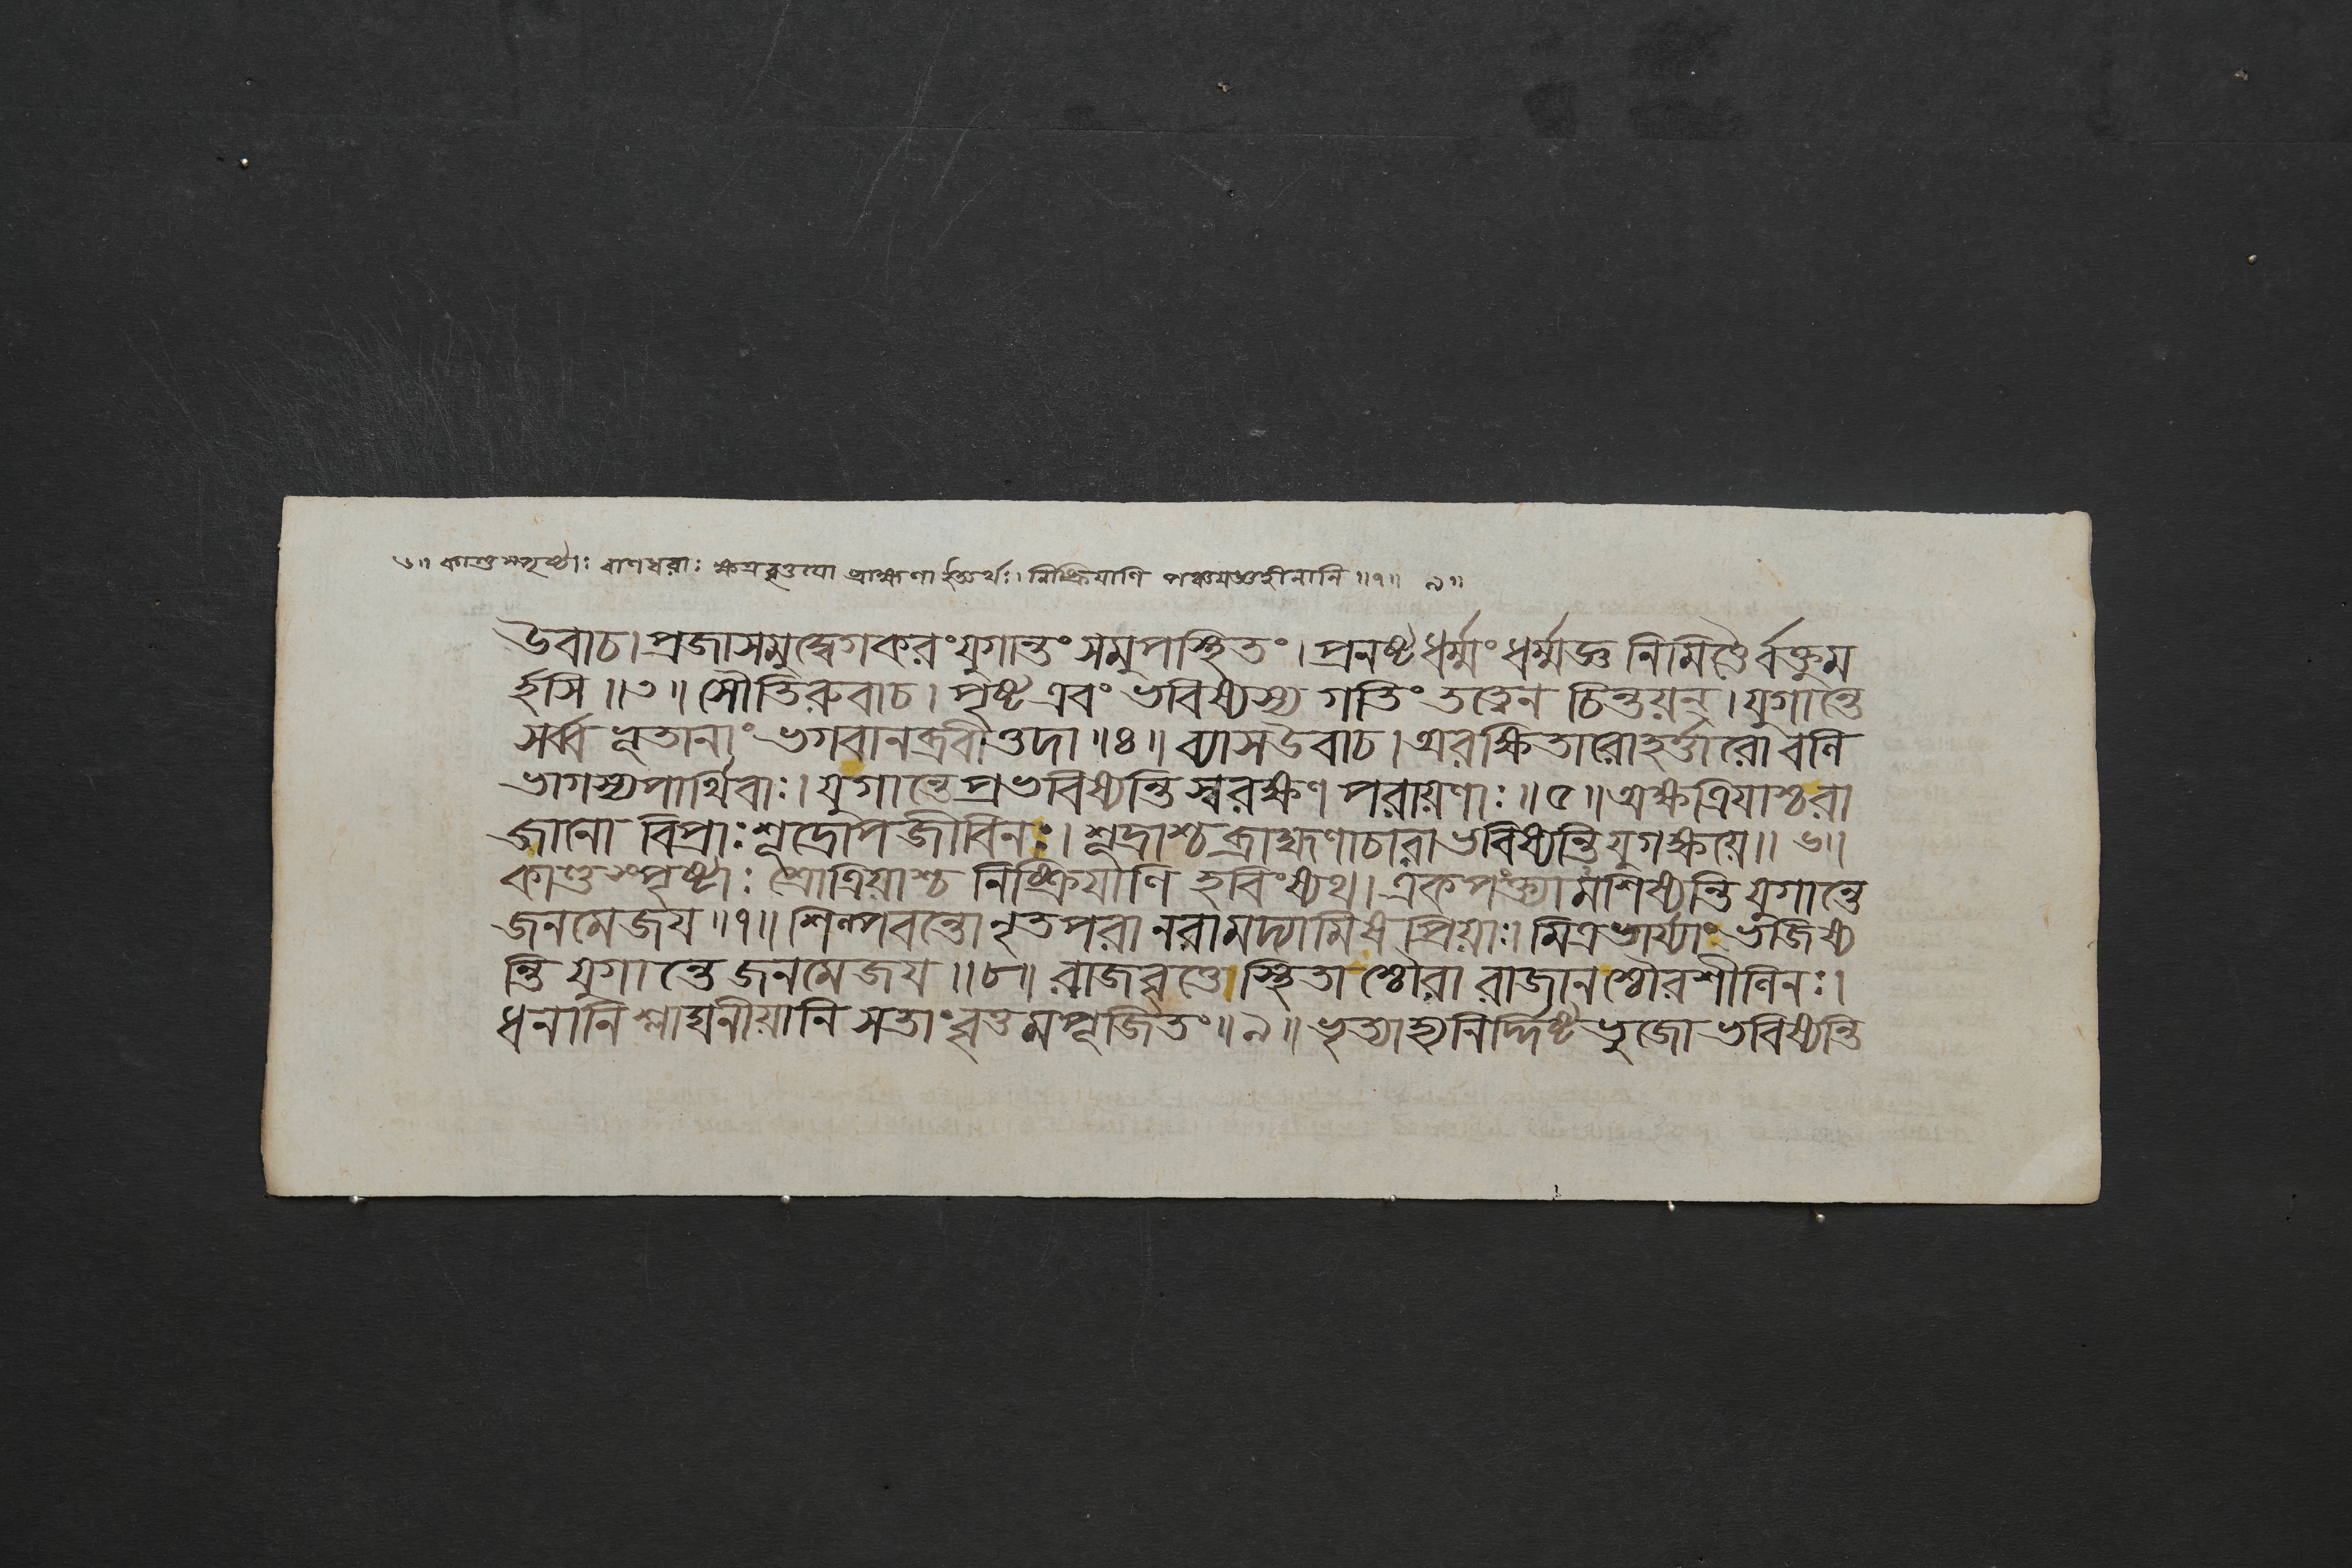 ৬॥ কাণ্ডস্পৃষ্ঠাঃ বাণধরাঃ ক্ষত্রবৃত্তয়ো ব্রাহ্মণা ইত্যর্থঃ। নিষ্ক্রিয়াণি পঞ্চযজ্ঞহীনানি॥৭॥ ৯॥
উবাচ। প্রজাসমুদ্বেগকরং যুগান্তং সমুপস্থিতং। প্রনষ্টধর্ম্মং ধর্ম্মজ্ঞ নিমিত্তৈর্বক্তুম
র্হসি॥৩॥ সৌতিরুবাচ। পৃষ্ট এবং ভবিষ্যস্য গতিং তত্ত্বেন চিন্তয়ন্। যুগান্তে
সর্ব্বভূতানাং ভগবানব্রবীত্তদা॥৪॥ ব্যাস উবাচ। অরক্ষিতারো হর্ত্তারো বলি
ভাগস্য পার্থিবাঃ। যুগান্তে প্রভবিষ্যন্তি স্বরক্ষণ পরায়ণাঃ॥৫॥ অক্ষত্রিয়াশ্চ রা
জানো বিপ্রাঃ শূদ্রোপজীবিনঃ। শূদ্রাশ্চ ব্রাহ্মণাচারা ভবিষ্যন্তি যুগক্ষয়ে॥৬॥
কাণ্ডস্পৃষ্টাঃ শ্রোত্রিয়াশ্চ নিষ্ক্রিয়াণি হবিংষ্যথ। একপংক্ত্যামশিষ্যন্তি যুগান্তে
জনমেজয়॥৭॥ শিল্পবন্তো নৃতপরা নরা মদ্যামিষপ্রিয়াঃ। মিত্রভার্য্যাং ভজিষ্য
ন্তি যুগান্তে জনমেজয়॥৮॥ রাজবৃত্তে স্থিতা শ্চৌরা রাজানশ্চৌরশীলিনঃ।
ধনানি শ্লাঘনীয়ানি সতাং বৃত্তমপূজিতং॥৯॥ ভৃত্যাহ্যনির্দ্দিষ্টভুজো ভবিষ্যন্তি